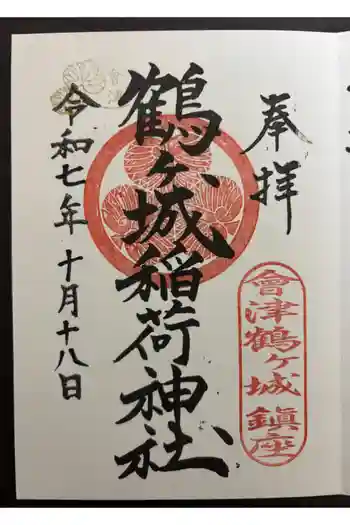 奉拝
會津鶴ヶ城鎮座
鶴ヶ城稲荷神社
令和七年十月十八日
會津